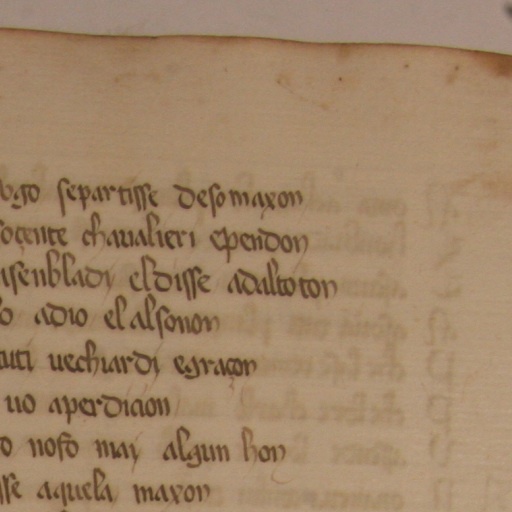 ugo separtisse desomaxon
soçente chaualieri ependon
isenbladi eldisse adaltoton
adio el alsonon
tuti uechiardi egraçon
uo aperdicion
o nofo mai algun hon
sse aquela maxon